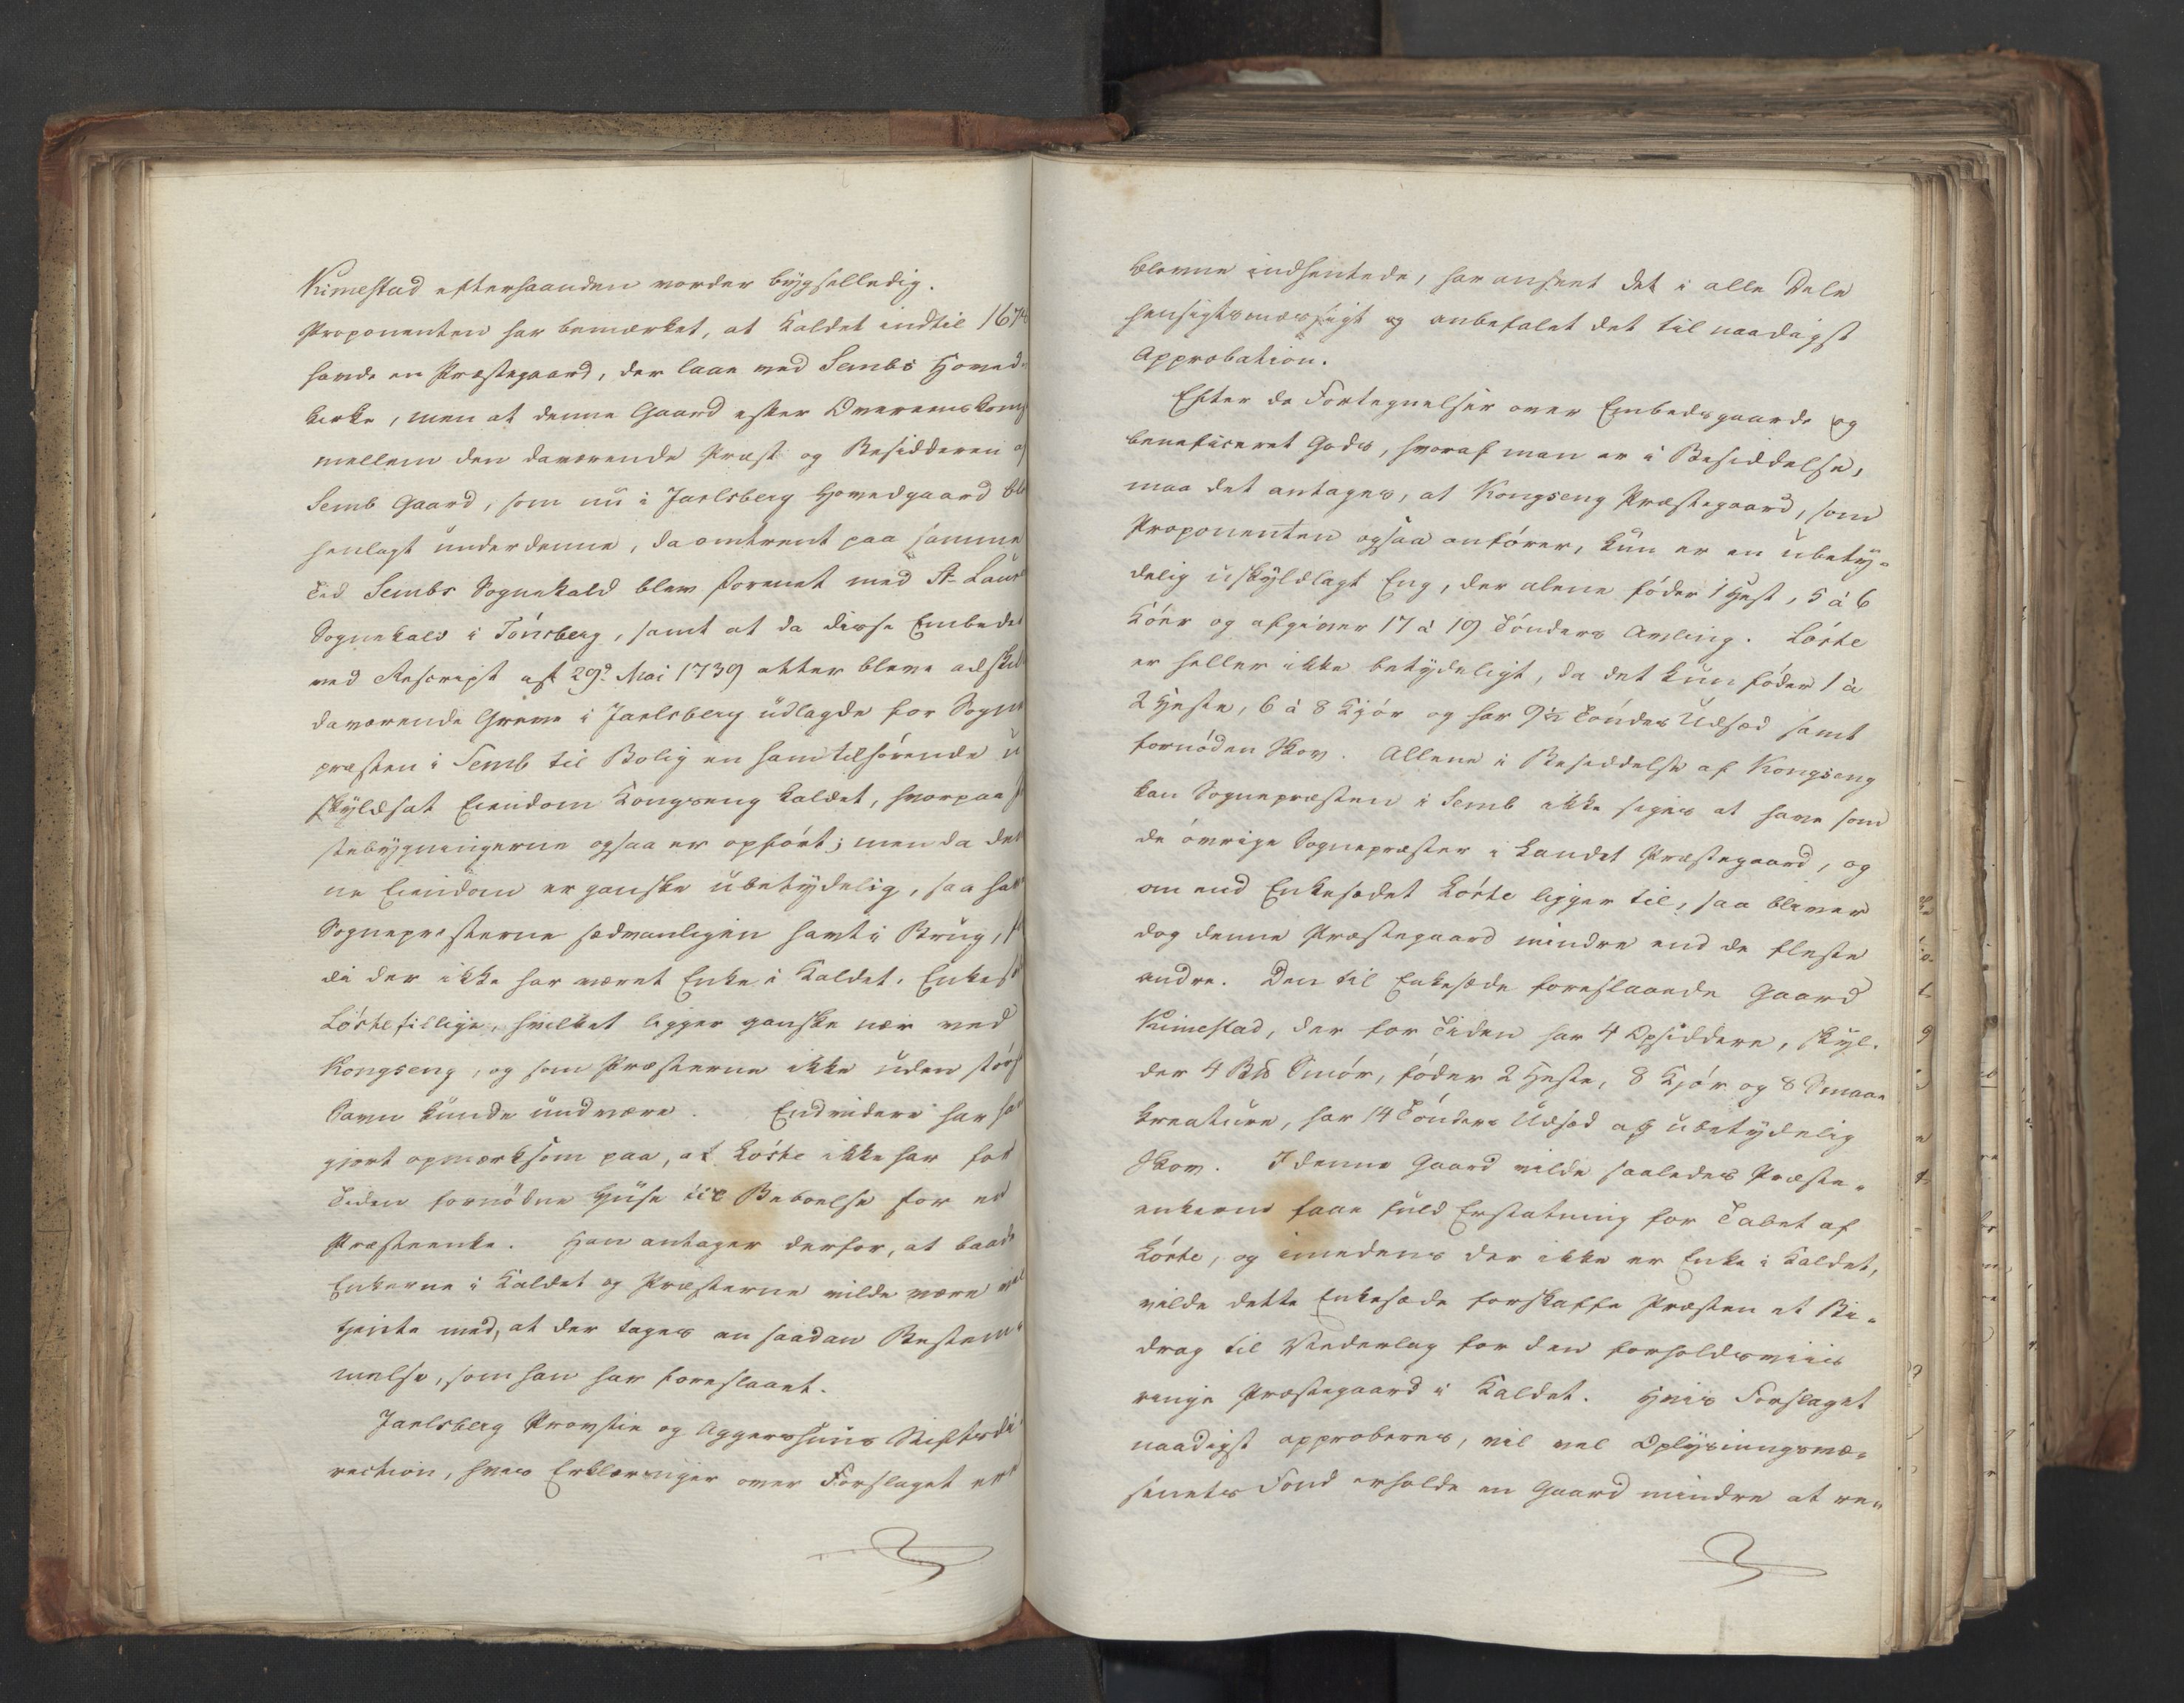 Kimestad efterhaanden vorder bygselledig.
Proponenten har bemærket, at Kaldet indtil 167
havde en Præstegaard, der laae ved Sembs Hoved-
kirke, men at denne Gaard efter Overeenskomst
mellem den daværende Præst og Besidderen af
Semb Gaard, som nu i Jarlsberg Hovedgaard blev
henlagt under denne, da omtrent paa samme
Tid Sembs Sognekald blev forenet med St. Laur
Sognekald i Tónsberg, samt at da disse Embeder
ved Rescript af 29d Mai 1739 atter bleve adskilte
daværende Greve i Jarlsberg udlagde for Sogne
præsten i Semb til Bolig en ham tilhørende u
skyldsat Eiendom Kongseng kaldet, hvorpaa
stebygningerne ogsaa er opfórt; men da den
ne Eiendom er ganske ubetydelig, saa have
Sognepræsterne sædvanligen havt i Brug,
da der ikke har været Enke i Kaldet, Enkes
Lórte tillige, hvilket ligger ganske nær ved
Kongseng, og som Præsterne ikke uden stórste
Savn kunde undvære. Endvidere har han
gjort opmærksom paa, at Lórte ikke har for
Tiden fornödne Huse til Beboelse for en
Præsteenke. Han antager derfor, at baade
Enkerne i Kaldet og Præsterne vilde være vel
tjente med, at der tages en saadan Bestem-
melse, som han har foreslaaet.
Jarlsberg Provstie og Aggershuus Stiftsdi-
rection, hvis Erklæringer over Forslaget ere
blevne indhentede, har anseet det i alle Dele
hensigtsmæssigt og anbefalet det til naadigst
Approbation.
Efter de Fortegnelser over Embedsgaarde og
beneficeret Gods, hvoraf man er i Besiddelse,
maa det antages, at Kongseng Præstegaard, som
Proponenten ogsaa anfórer, kun er en ubety-
delig uskyldlagt Eng, der alene fóder 1 Hest, 5 à 6
Kóer og afgiver 17 à 19 Tónders Avling. Lórte
er heller ikke betydeligt, da det kun fóder 1 à
2 Heste, 6 à 8 Kjór og har 9½ Tóndes Udsæd samt
fornóden Skov. Allene i Besiddelse af Kongseng
kan Sognepræsten i Semb ikke siges at have som
de óvrige Sognepræster i Landet Præstegaard, og
om end Enkesædet Lórte ligger til, saa bliver
dog denne Præstegaard mindre end de fleste
andre. Den til Enkesæde foreslaaede Gaard
Kimestad, der for Tiden har 4 Opsiddere, skyl-
der 4 Bpd Smór, fóder 2 Heste, 8 Kjór og 8 Smaae
kreature, har 14 Tónders Udsæd og ubetydelig
Skov. I denne Gaard vilde saaledes Præste-
enkerne faae fuld Erstatning for Tabet af
Lórte, og imedens der ikke er Enke i Kaldet,
vilde dette Enkesæde forskaffe Præsten et Bi-
drag til Vederlag for den forholdsviis
ringe Præstegaard i Kaldet. Hvis Forslaget
naadigst approberes, vil vel Oplysningsvæ-
senets Fond erholde en Gaard mindre at re-